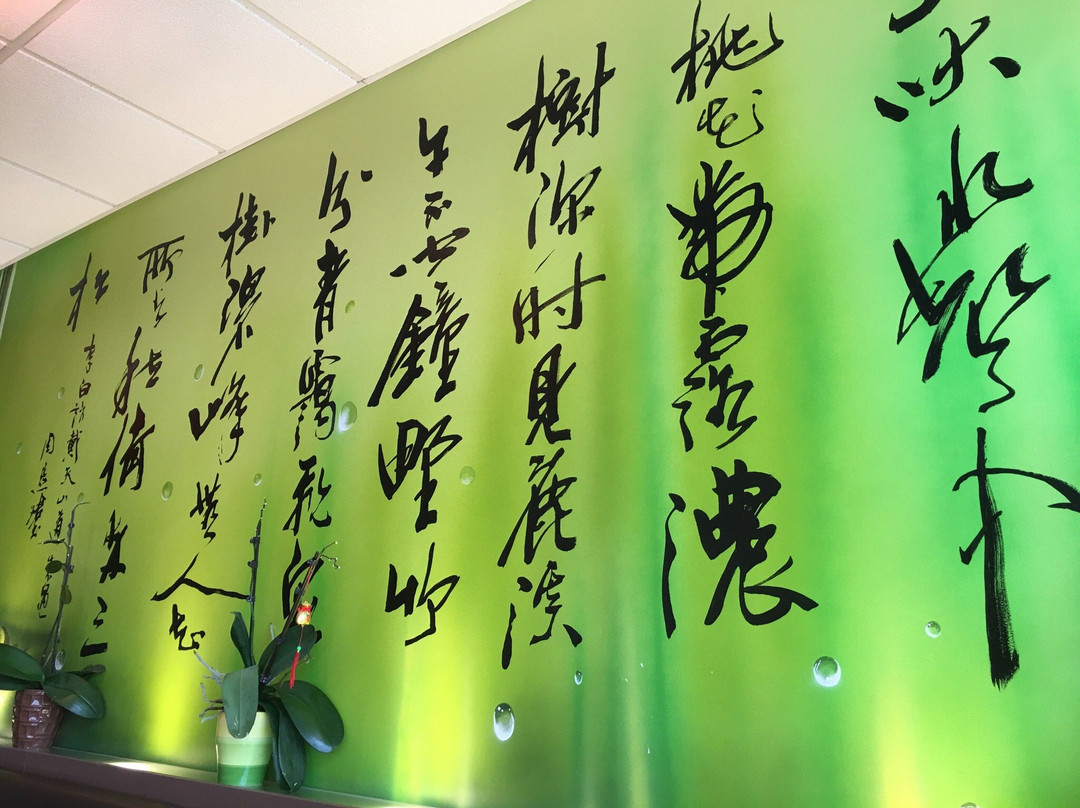 水聲中
桃花帶露濃
樹深時見鹿溪
午不聞鐘野竹
分青靄飛泉
掛碧峰無人知
所去愁倚兩三
松
李白訪戴天山道士不遇